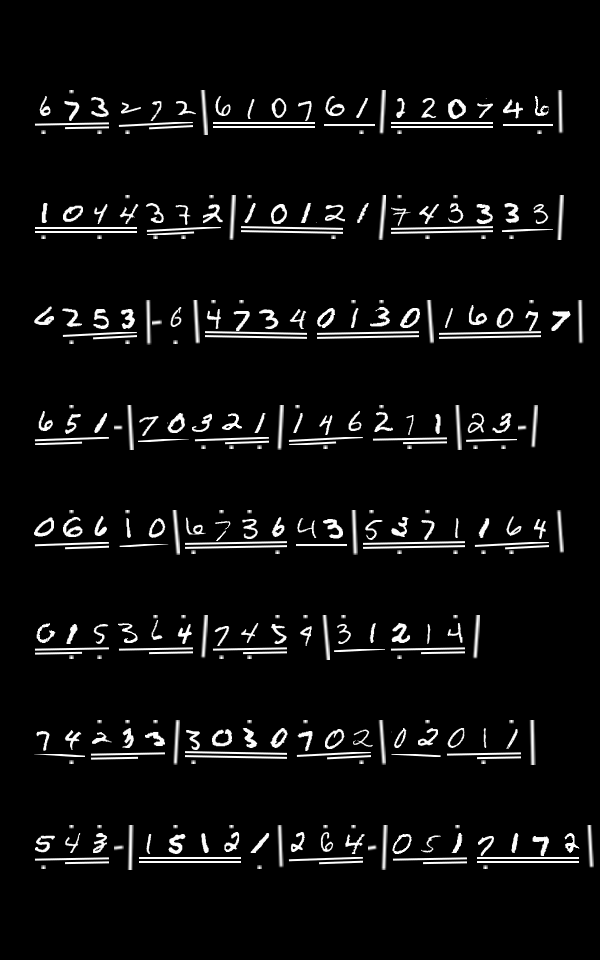 6 7 3 2 7 2 | 6 1 0 7 6 1 | 2 2 0 7 4 6 |
1 0 4 4 3 7 2 | 1 0 1 2 1 | 7 4 3 3 3 3 |
6 2 5 3 | - 6 | 4 7 3 4 0 1 3 0 | 1 6 0 7 7 |
6 5 1 - | 7 0 3 2 1 | 1 4 6 2 7 1 | 2 3 - |
0 6 6 1 0 | 6 7 3 6 4 3 | 5 3 7 1 1 6 4 |
0 1 5 3 6 4 | 7 4 5 9 | 3 1 2 1 4 |
7 4 2 3 3 | 3 0 3 0 7 0 2 | 0 2 0 1 1 |
5 4 3 - | 1 5 1 2 1 | 2 6 4 - | 0 5 1 7 1 7 2 |